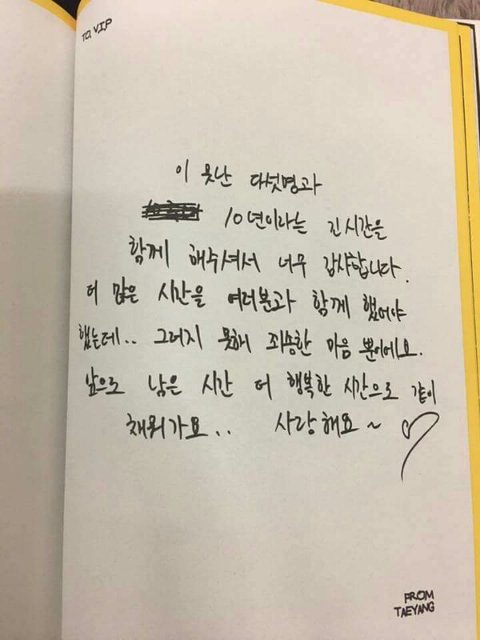 TO. V.I.P
이 못난 다섯명과
10년이라는 긴 시간을
함께 해주셔서 너무 감사합니다.
더 많은 시간을 여러분과 함께 했어야
했는데.. 그러지 못해 죄송한 마음 뿐이에요.
남으로 남은 시간 더 행복한 시간으로 같이
채워가요.. 사랑해요~
FROM
TAEYANG